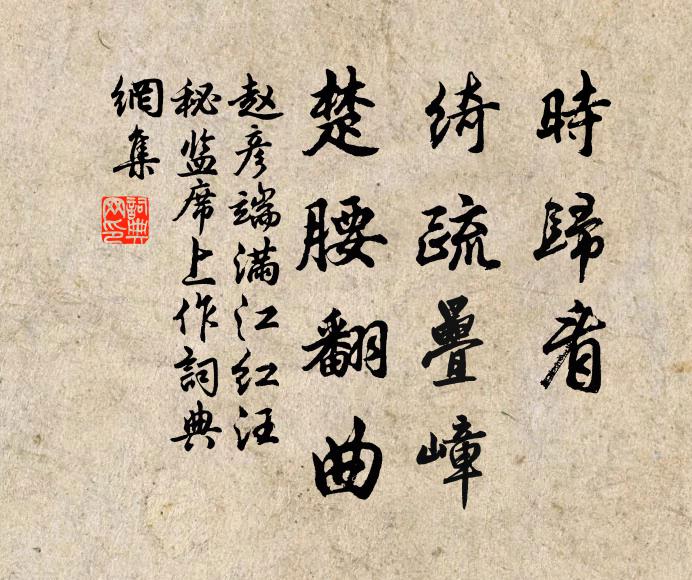 時歸看
綺疏疊嶂
楚腰翻曲
赵彦端满江红汪
秘监席上作詞典
網集
詞典网印